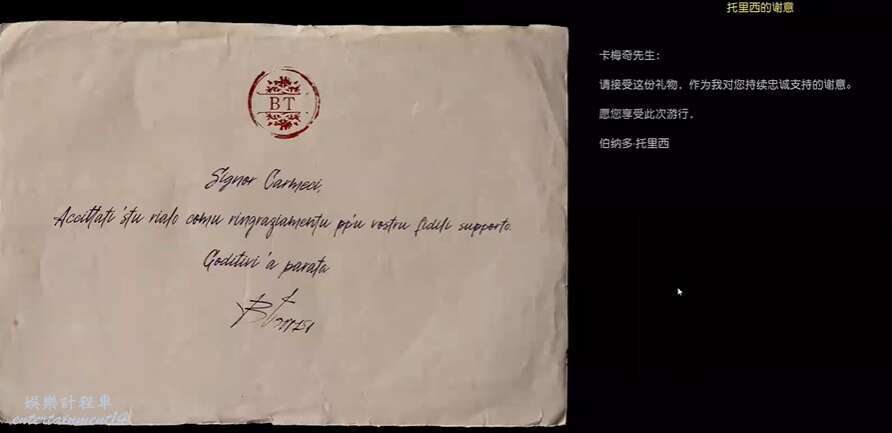 托里西的谢意
BT
Signor Carmeci,
Accittati 'stu rialo comu ringraziamentu ppi'u vostru fidili supporto.
Goditivi 'a parata
卡梅奇先生：
请接受这份礼物，作为我对您持续忠诚支持的谢意。
愿您享受此次游行。
伯纳多·托里西
娱樂計程車
entertainment19